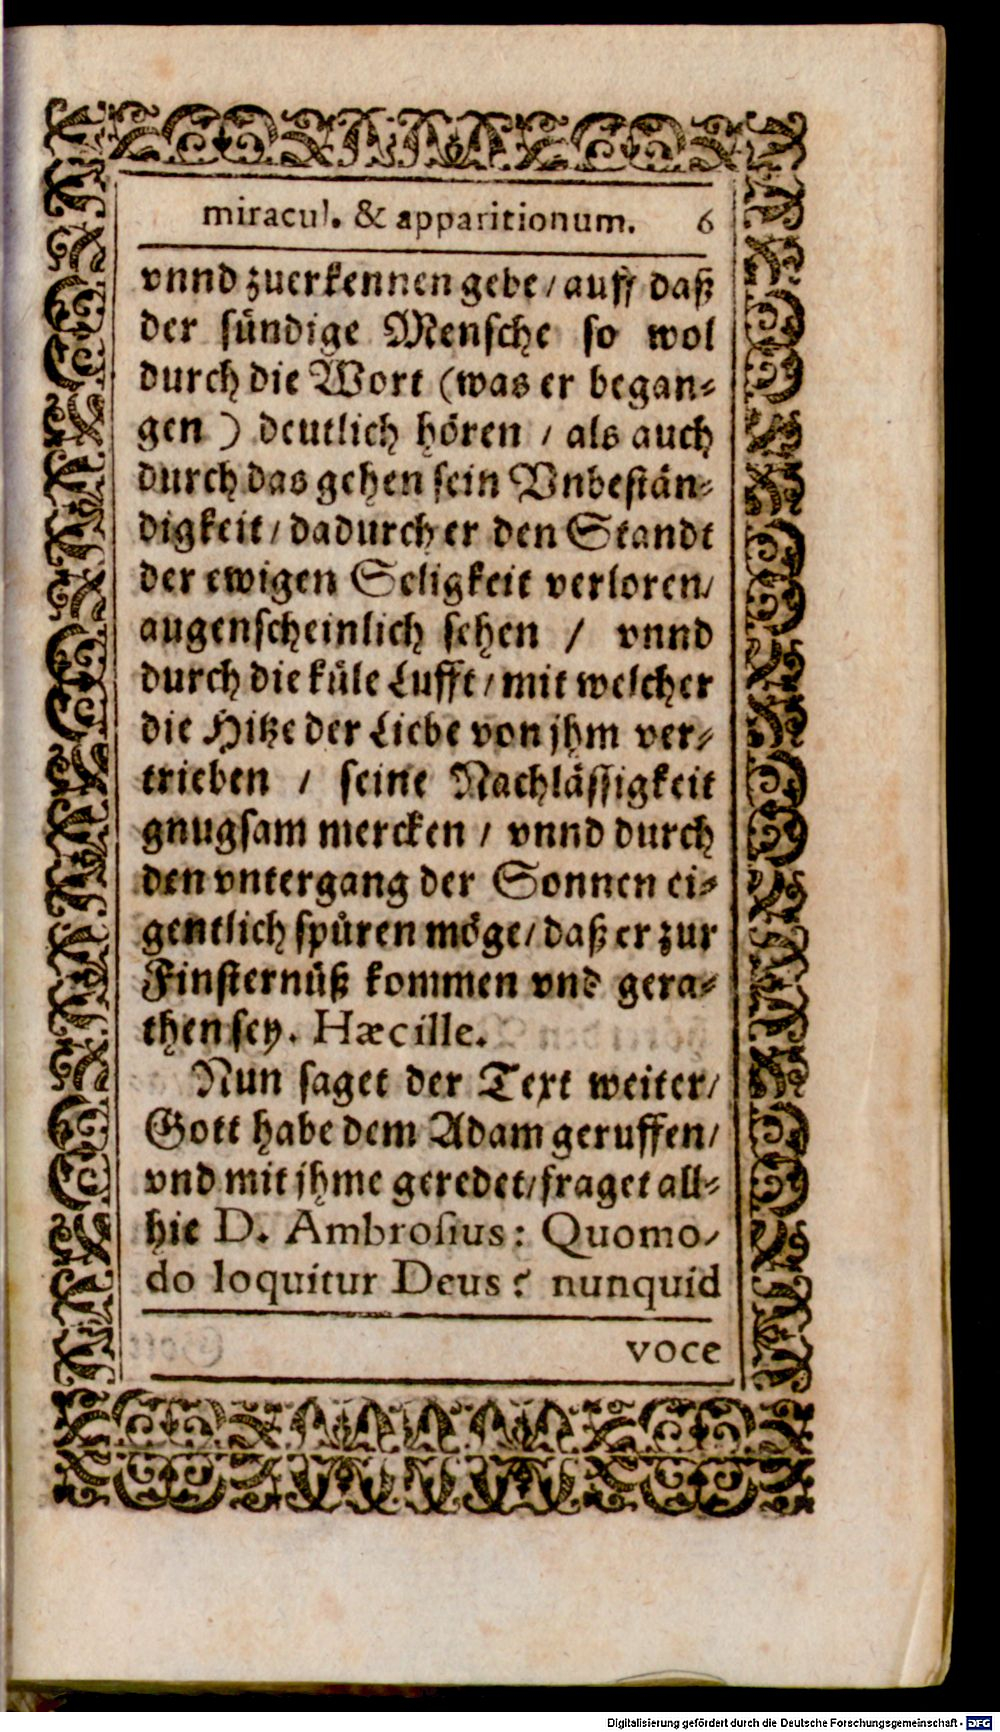 miracul. & apparitionum. 6
vnnd zuerkennen gebe / auff daß
der sündige Mensche so wol
durch die Wort (was er began⸗
gen ) deutlich hören / als auch
durch das gehen sein Vnbestän⸗
digkeit / dadurch er den Standt
der ewigen Seligkeit verloren /
augenscheinlich sehen / vnnd
durch die küle Lufft / mit welcher
die Hitze der Liebe von jhm ver⸗
trieben / seine Nachlässigkeit
gnugsam mercken / vnnd durch
den vntergang der Sonnen ei⸗
gentlich spüren möge / daß er zur
Finsternüß kommen vnd gera⸗
then sey. Hæc ille.
Nun saget der Text weiter /
Gott habe dem Adam geruffen /
vnd mit jhme geredet / fraget all⸗
hie D. Ambrosius: Quomo-
do loquitur Deus? nunquid
voce
Digitalisierung gefördert durch die Deutsche Forschungsgemeinschaft - DFG